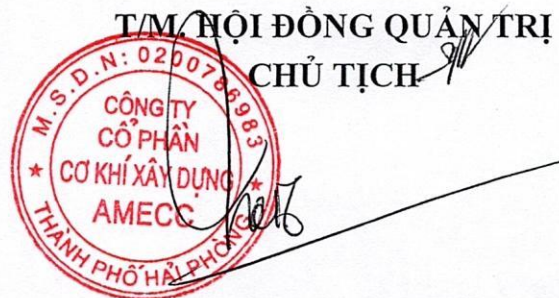 T/M. HỘI ĐỒNG QUẢN TRỊ
CHỦ TỊCH
M.S.D.N: 0200786983
CÔNG TY
CỔ PHẦN
CƠ KHÍ XÂY DỰNG
AMECC
THÀNH PHỐ HẢI PHÒNG